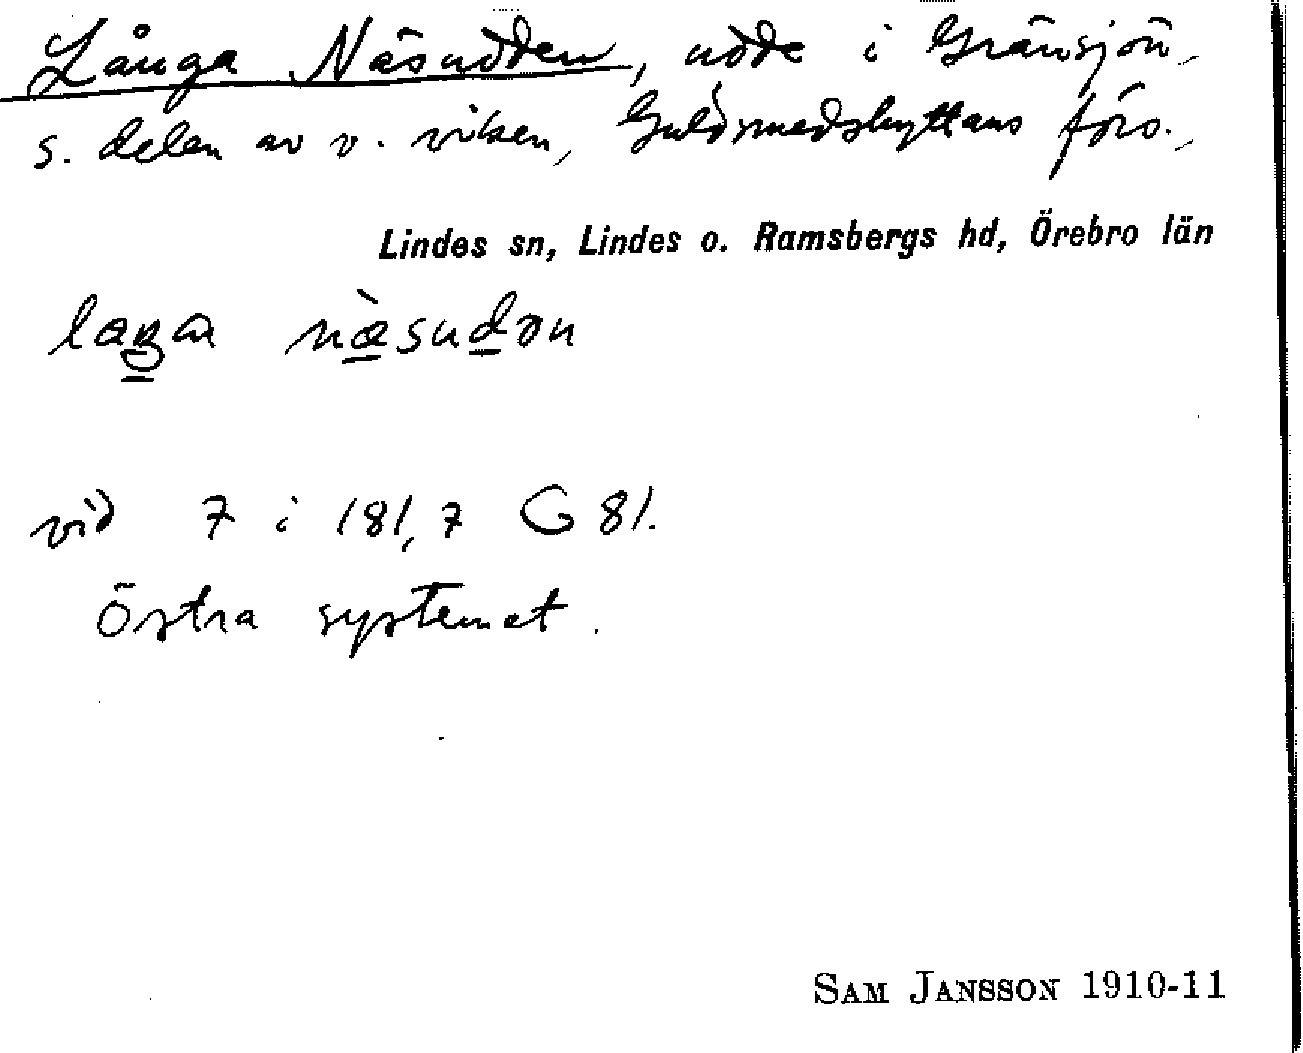 Långa Näsudden, udde i Gränsjön,
s. delen av v. viken, Guldsmedshyttans förs.,
Lindes sn, Lindes o. Ramsbergs hd, Örebro län
laŋa næ̀sudən
vid 7 i 181,7 G 81.
Östra systemet.
SAM JANSSON 1910-11